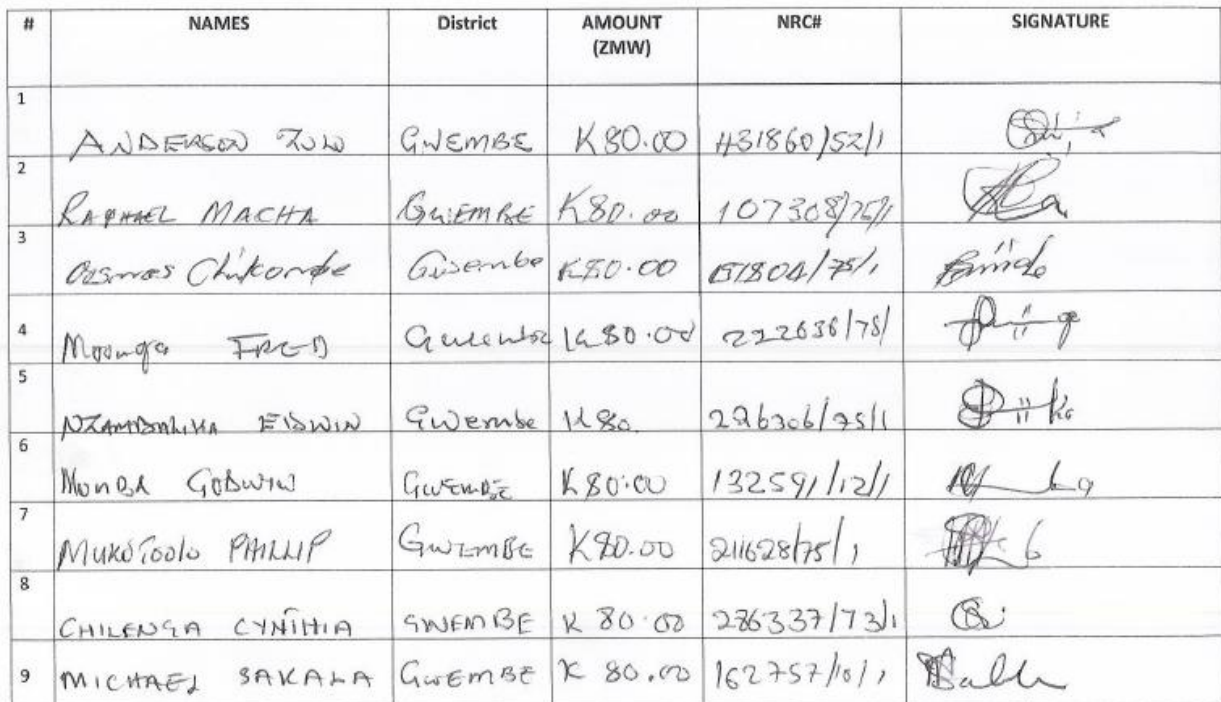 # NAMES District AMOUNT (ZMW) NRC# SIGNATURE
1 ANDERSON ZULU GWEMBE K80.00 431860/52/1
2 RAPHAEL MACHA GWEMBE K80.00 107308/75/1
3 Chikombe Gwembe K80.00 151804/75/1
4 Moonga FRED Gwembe K80.00 222636/75/
5 EDWIN Gwembe K80 296306/75/1
6 MUNOA GODWIN GWEMBE K80.00 132591/12/1
7 PHILLIP GWEMBE K80.00 211628/75/1
8 CHILENGA CYNTHIA GWEMBE K 80.00 286337/73/1
9 MICHAEL SAKALA GWEMBE K 80.00 162757/10/1